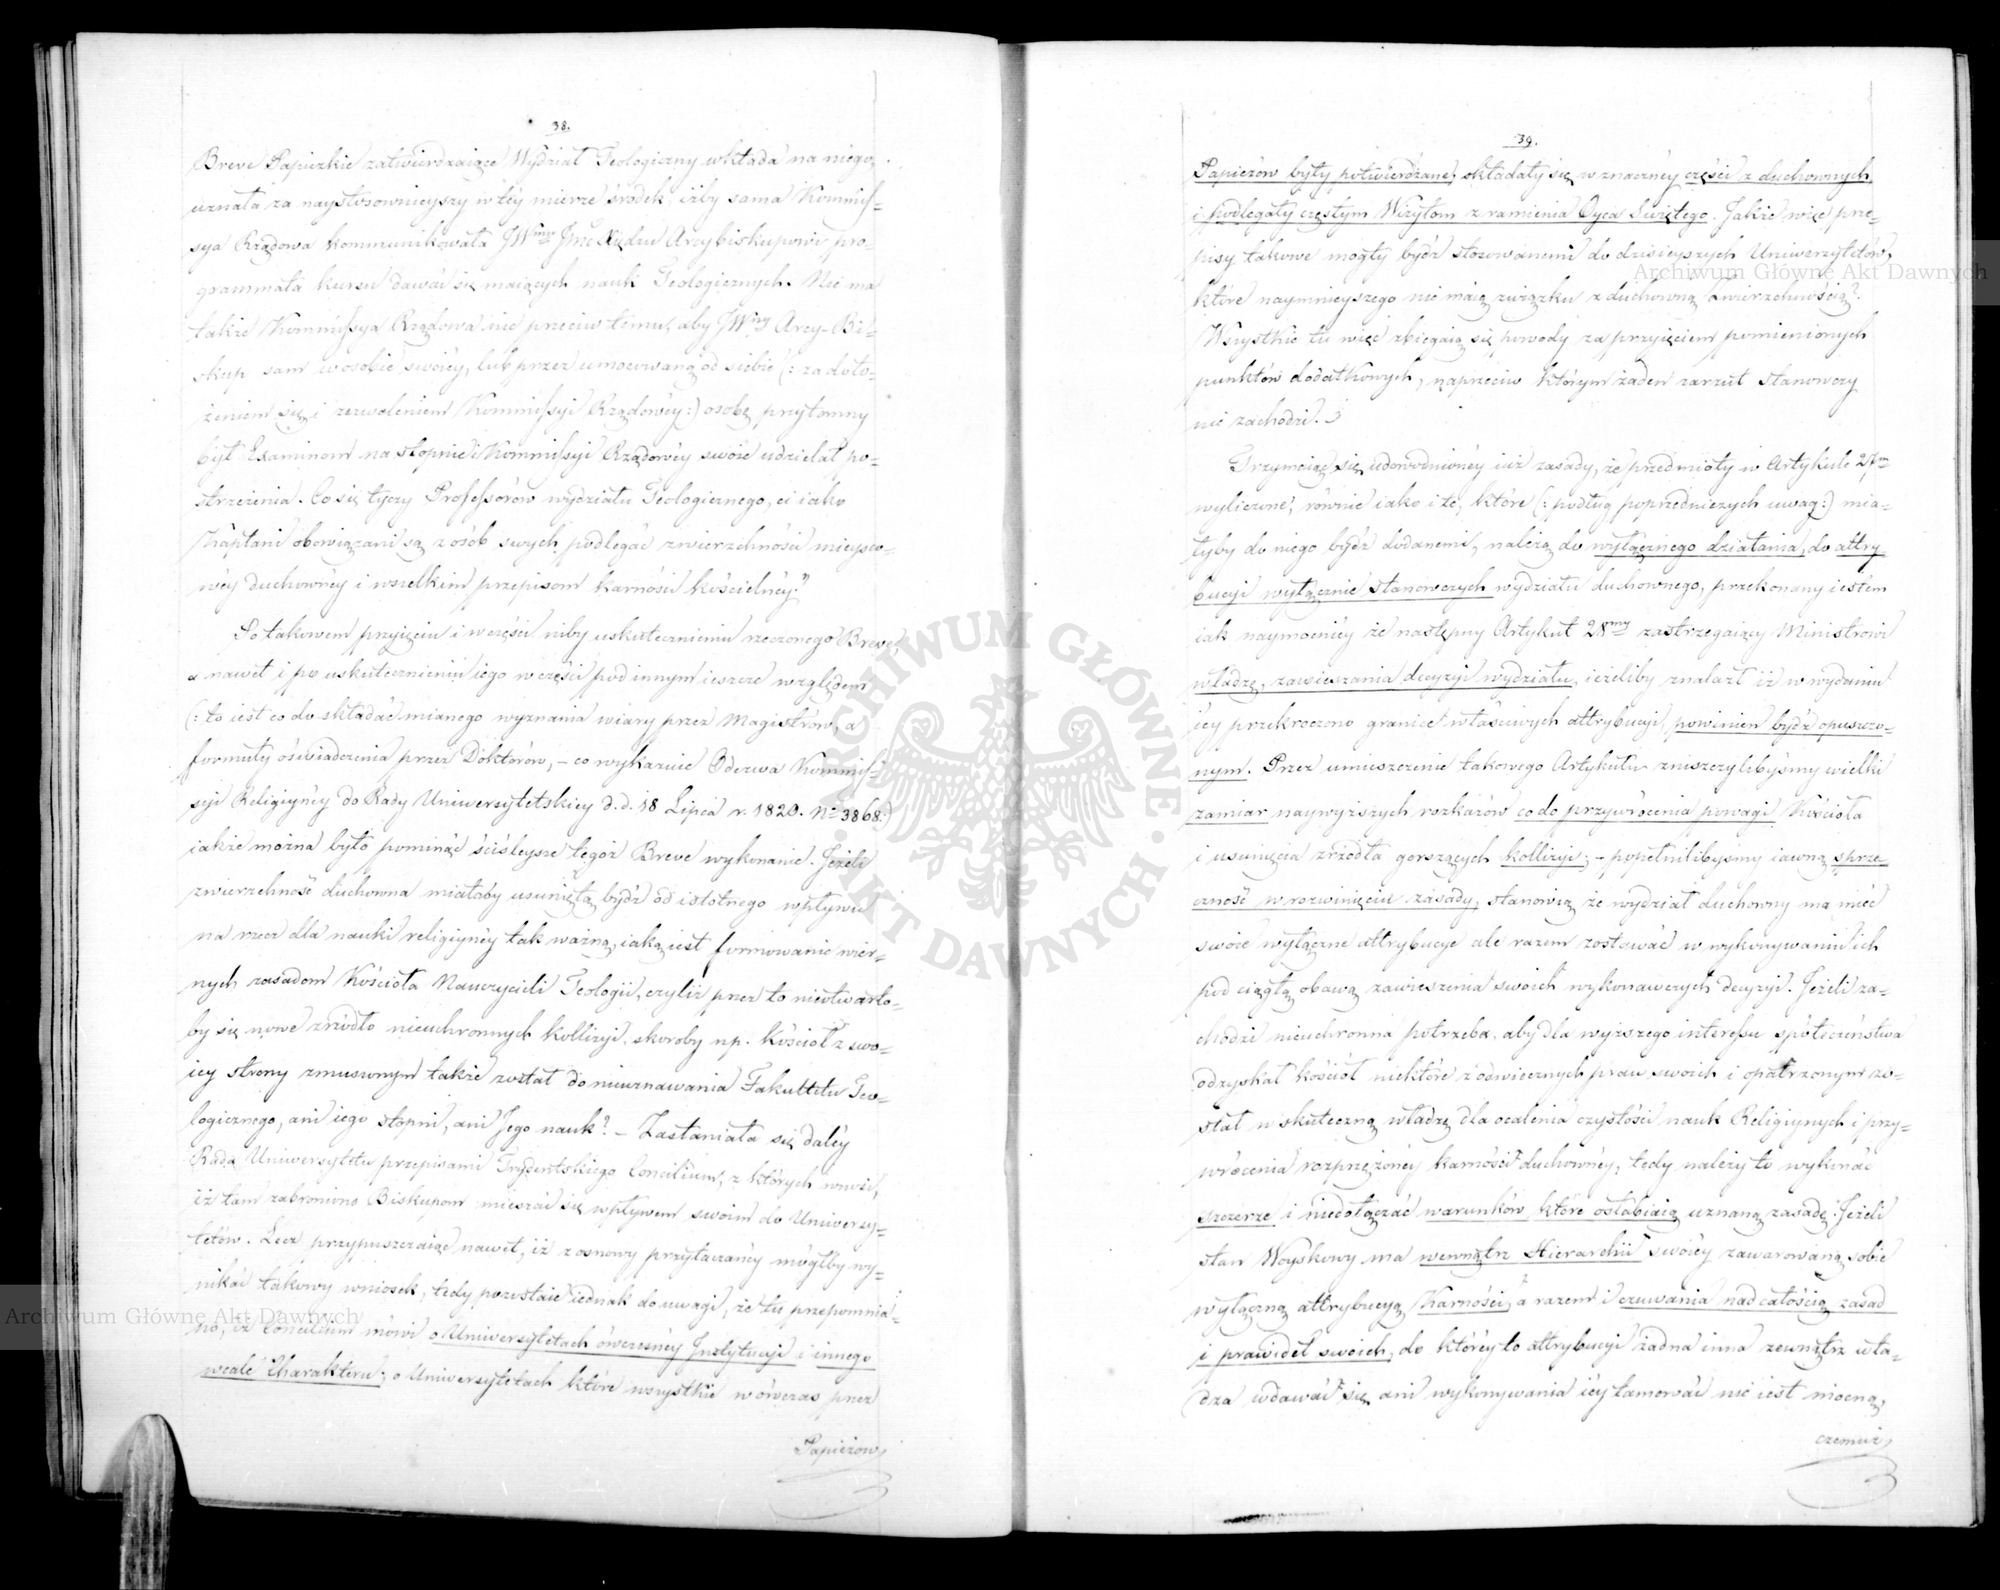 38.
Breve Papiezkie zatwierdzaiące Wydział Teologiczny wkłada na niego,
uznała za naystosownieyszy w tey mierze środek iżby sama Kommis-
sya Rządowa kommunikowała JWmu Jmc Xiędzu Arcybiskupowi pro-
grammata kursu dawać się maiących nauk Teologicznych. Nie ma
także Kommissya Rządowa nic przeciw temu, aby JWny Arcy-Bi-
skup sam w osobie swoiéy, lub przez umocowaną od siebie (: za doło-
żeniem się i zezwoleniem Kommissyi Rządowéy :) osobę przytomny
był Examinom na stopnie i Kommissyi Rządowéy swoie udzielał po-
strzeżenia. Co się tyczy Professorów wydziału Teologicznego, ci iako
Kapłani obowiązani są z osób swych podlegać zwierzchności mieysco-
wéy duchownéy i wszelkim przepisom karności kościelnéy."
Po takowem przyięciu i w części niby uskutecznieniu rzeczonego Breve,
a nawet i po uskutecznieniu iego w części pod innym ieszcze względem
(: to iest co do składać mianego wyznania wiary przez Magistrów, a
formuły oświadczenia przez Doktorów, – co wykazuie Odezwa Kommis-
syi Religiynéy do Rady Uniwersytetskiey d. d. 18 Lipca r. 1820. No 3868:)
iakże można było pominąć ściśleysze tegoż Breve wykonanie. Jeżeli
zwierzchność duchowna miałaby usuniętą bydź od istotnego wpływu
na rzecz dla nauki religiynéy tak ważną, iaką iest formowanie wier-
nych zasadom Kościoła Nauczycieli Teologii, czyliż przez to nieotwarło-
by się nowe zrzódło nieuchronnych kollizyi, skoroby np. Kościoł z swo-
iey strony zmuszonym także został do nieuznawania Fakultetu Teo-
logicznego, ani iego stopni, ani Jego nauk? – Zasłaniała się daléy
Rada Uniwersytetu przepisami Trydentskiego Concilium, z których wnosi,
iż tam zabroniono Biskupom mieszać się wpływem swoim do Uniwersy-
tetów. Lecz przypuszczaiąc nawet, iż z osnowy przytaczanéy mógłby wy-
nikać takowy wniosek, tedy pozostaie iednak do uwagi, że tu przepomnia-
no, iż Concilium mówi o Uniwersytetach ówczesnéy Instytucyi i innego
wcale Charakteru; o Uniwersytetach które wszystkie wówczas przez
Papieżow
39.
Papieżów były potwierdzane, składały się w znacznéy części z duchownych,
i podlegały częstym Wizytom z ramienia Oyca Swiętego. Jakże więc prze-
pisy takowe mogły bydź stosowanemi do dzisieyszych Uniwersytetów,
które naymnieyszego nie maią związku z duchowną Zwierzchnością?
Wszystkie tu więc zbiegaią się powody za przyięciem pomienionych
punktów dodatkowych, naprzeciw którym żaden zarzut stanowczy
nie zachodzi.
Trzymaiąc się udowodnionéy iuż zasady, że przedmioty w Artykule 27m
wyliczone, równie iako i te, które (: podług poprzedniczych uwag :) mia-
łyby do niego bydź dodanemi, należą do wyłącznego działania, do attry-
bucyi wyłącznie stanowczych wydziału duchownego, przekonany iestem
iak naymocniey że następny Artykuł 28my zastrzegaiący Ministrowi
władzę, zawieszania decyzyi wydziału, ieżeliby znalazł iż w wydaniu
iéy przekroczono granice właściwych attrybucyi, powinien bydź opuszczo-
nym. Przez umieszczenie takowego Artykułu zniszczylibyśmy wielki
zamiar naywyższych rozkazów co do przywrócenia powagi Kościoła
i usunięcia zrzódła gorszących kollizyi; – popełnilibyśmy iawną sprze-
czność w rozwinięciu zasady, stanowią że wydział duchowny ma mieć
swóie wyłączne attrybucye ale razem zostawać w wykonywaniu ich
pod ciągłą obawą zawieszenia swoich wykonawczych decyzyi. Jeżeli za-
chodzi nieuchronna potrzeba, aby dla wyższego interessu społeczeństwa
odzyskał kościół niektóre z odwiecznych praw swoich i opatrzonym zo-
stał w skuteczną władzę dla ocalenia czystości nauk Religiynych i przy-
wrócenia rozprzężonéy karności duchownéy, tedy należy to wykonać
szczerze i niedołączać warunków, które osłabiaią uznaną zasadę. Jeżeli
stan Woyskowy ma wewnątrz Hierarchii swoiéy zawarowaną sobie
wyłączną attrybucyą Karności, a razem i czuwania nad całością zasad
i prawideł swoich, do któréy to attrybucyi żadna inna zewnątrz wła-
dza wdawać się ani wykonywania iéy tamować nie iest mocną,
czemuż
Archiwum Główne Akt Dawnych
Archiwum Główne Akt Dawnych
ARCHIWUM GŁÓWNE
AKT DAWNYCH